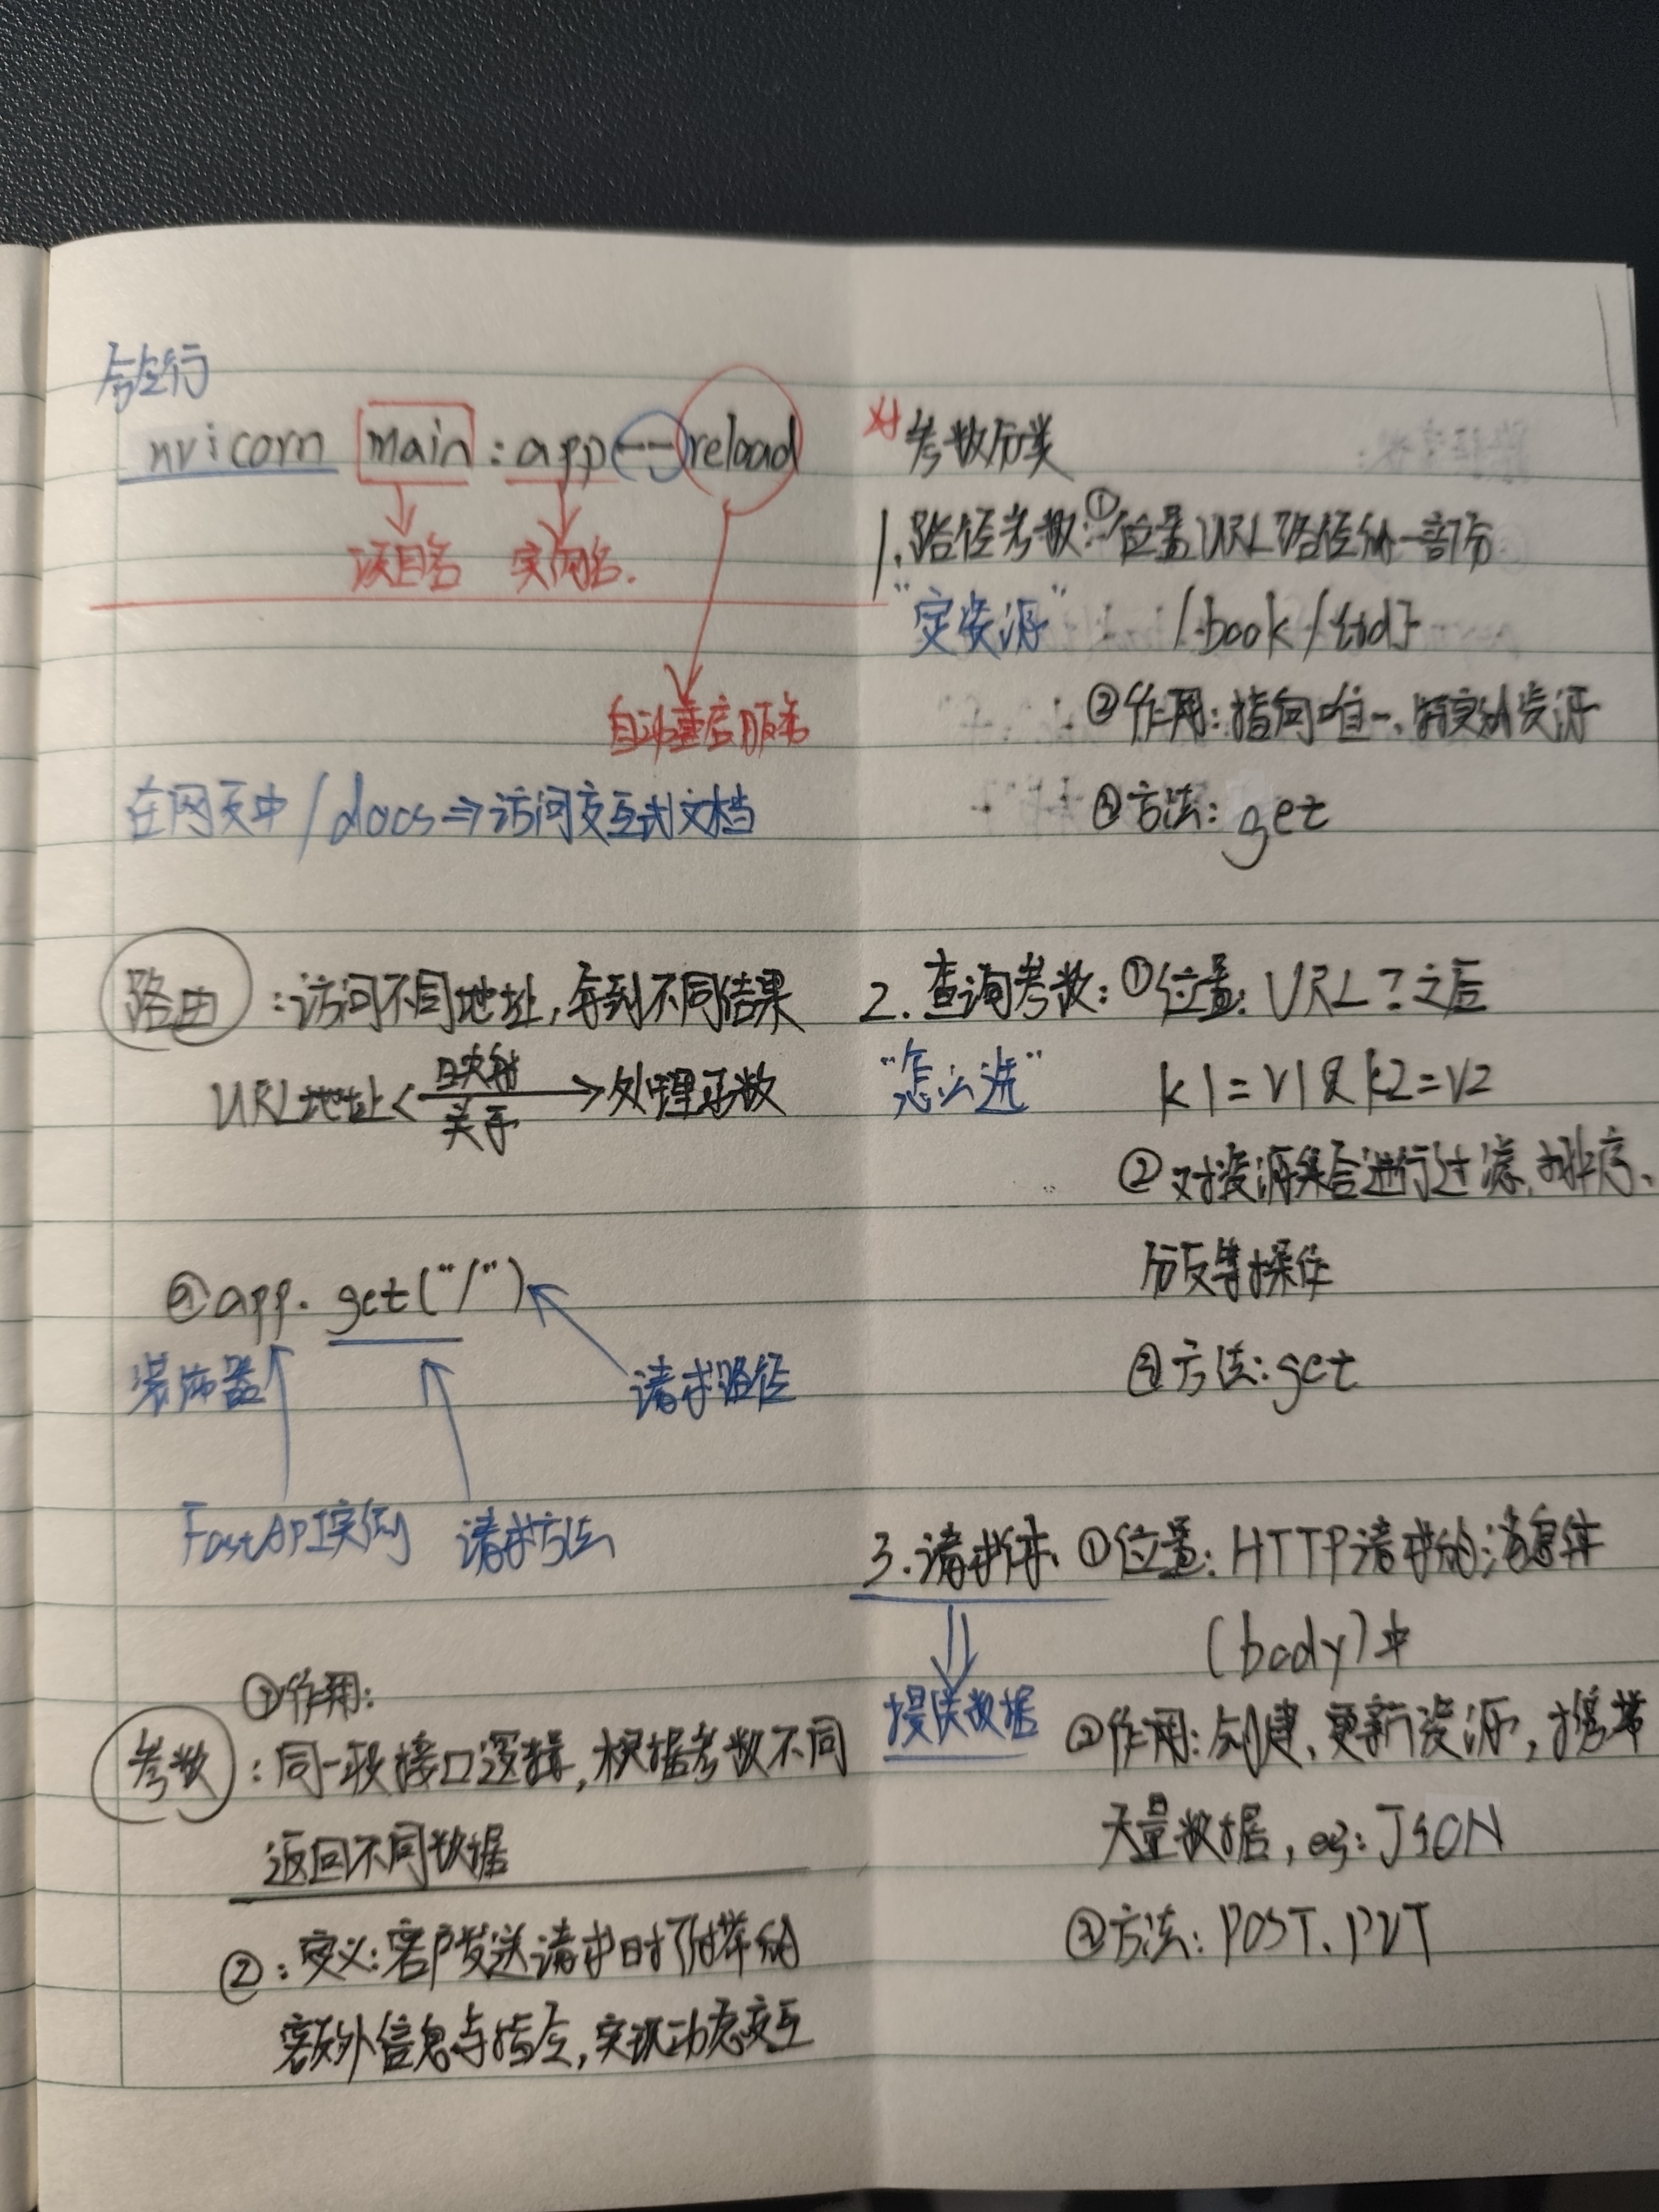 命令行
uvicorn main : app -- reload
项目名 实例名.
自动重启服务
在网页中 /docs ⇒ 访问交互式文档
路由 : 访问不同地址, 得到不同结果
URL地址 < 映射关系 > 处理函数
@app. get("/")
装饰器 请求路径
FastAPI实例 请求方法
①作用:
参数 : 同一段接口逻辑, 根据参数不同
返回不同数据
②: 定义: 客户发送请求时附带的
额外信息与指令, 实现动态交互
参数分类
1. 路径参数: ①位置 URL路径的一部分
"定资源" /book/{id}
②作用: 指向唯一、特定的资源
③方法: get
2. 查询参数: ①位置: URL?之后
"怎么选" k1=v1&k2=v2
②对资源集合进行过滤、排序、
分页等操作
③方法: get
3. 请求体. ①位置: HTTP请求的消息体
(body)中
提供数据 ②作用: 创建、更新资源, 携带
大量数据, eg: JSON
③方法: POST、PUT